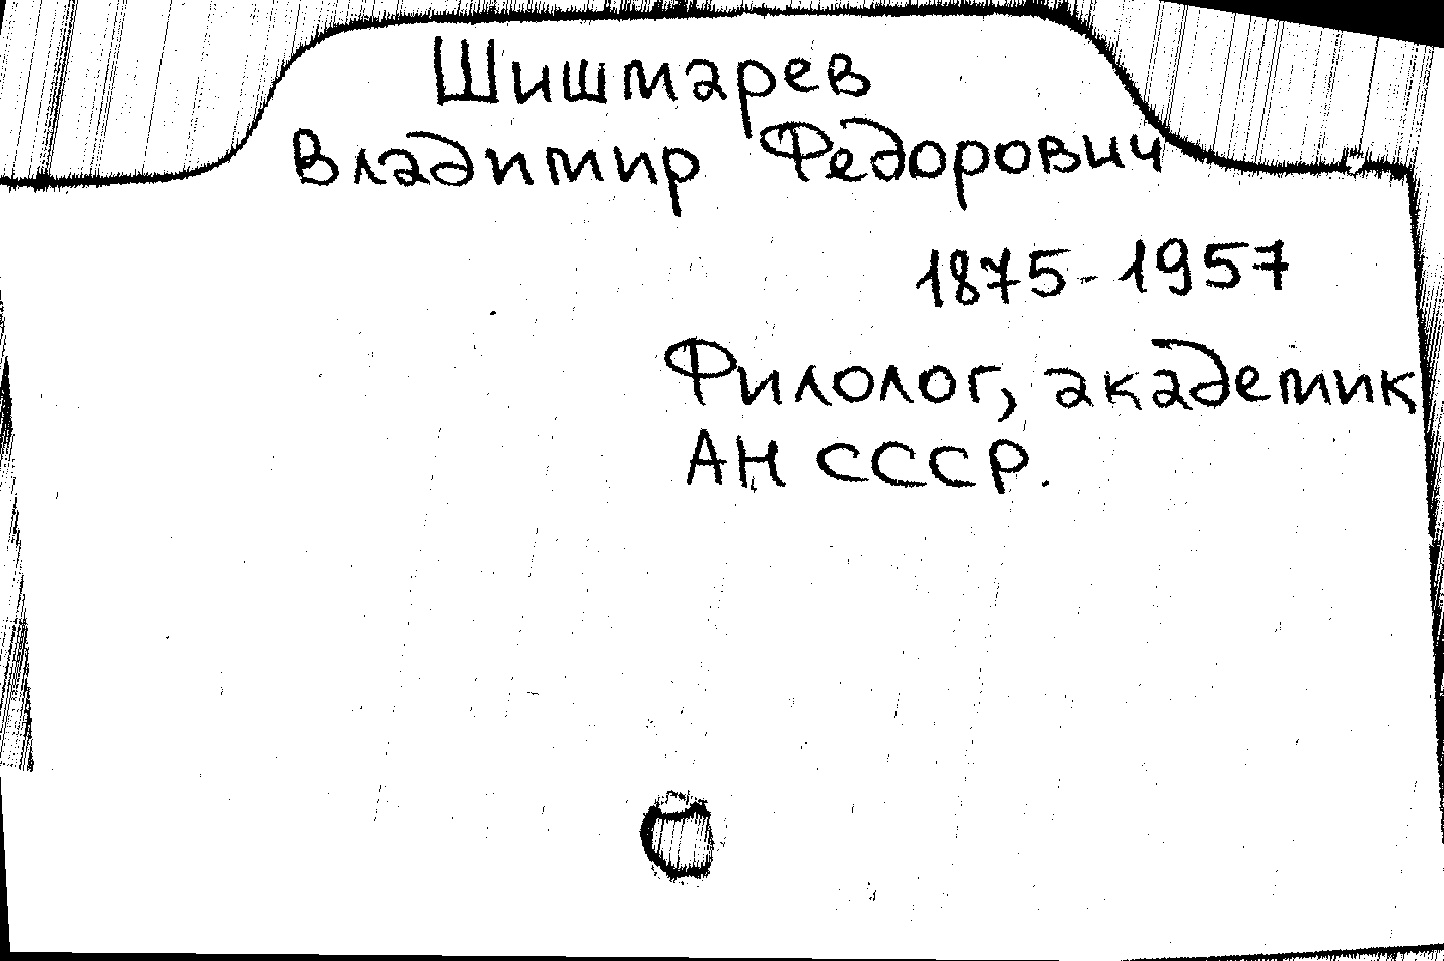 Шишмарев
Владимир Федорович
1875-1957
Филолог, академик
АН СССР.